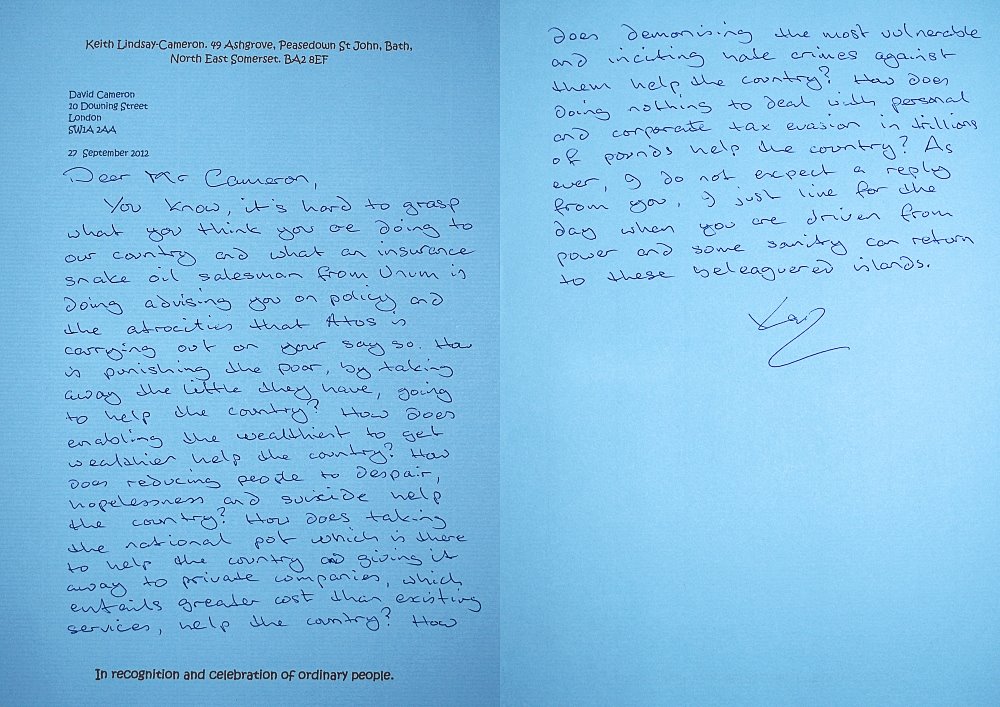 Keith Lindsay-Cameron. 49 Ashgrove, Peasedown St John, Bath,
North East Somerset. BA2 8EF
David Cameron
10 Downing Street
London
SW1A 2AA
27 September 2012
Dear Mr Cameron,
You know, it's hard to grasp
what you think you are doing to
our country and what an insurance
snake oil salesman from Unum is
doing advising you on policy and
the atrocities that Atos is
carrying out on your say so. How
is punishing the poor, by taking
away the little they have, going
to help the country? How does
enabling the wealthiest to get
wealthier help the country? How
does reducing people to despair,
hopelessness and suicide help
the country? How does taking
the national pot which is there
to help the country and giving it
away to private companies, which
entails greater cost than existing
services, help the country? How
In recognition and celebration of ordinary people.
does demonising the most vulnerable
and inciting hate crimes against
them help the country? How does
doing nothing to deal with personal
and corporate tax evasion in trillions
of pounds help the country? As
ever, I do not expect a reply
from you, I just live for the
day when you are driven from
power and some sanity can return
to these beleaguered islands.